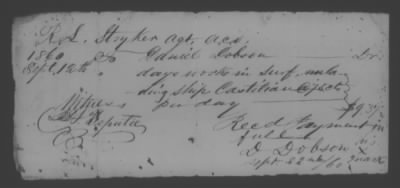 R. L. Stryker agt, acd.
1860 To Daniel Dobson Dr.
Sept. 12th days work in Surf, unloa
ding Ship Castilian
per day $9.37
Witness Recd Payment in
full
D Dobson
Sept 22nd /60